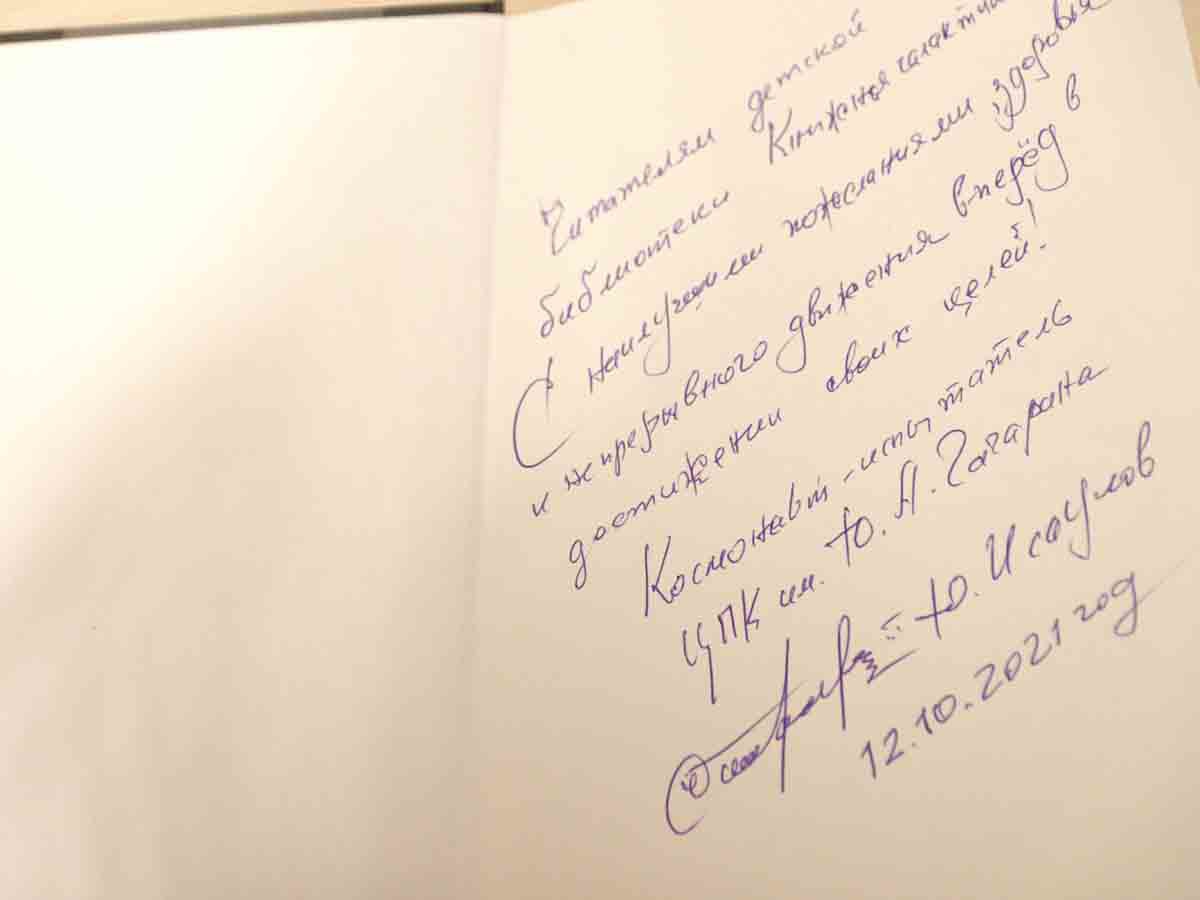 Читателям детской
библиотеки Книжная галактика
С наилучшими пожеланиями здоровья
и непрерывного движения вперёд в
достижении своих целей!
Космонавт-испытатель
ЦПК им. Ю. А. Гагарина
Ю. Исаулов
12.10.2021 год